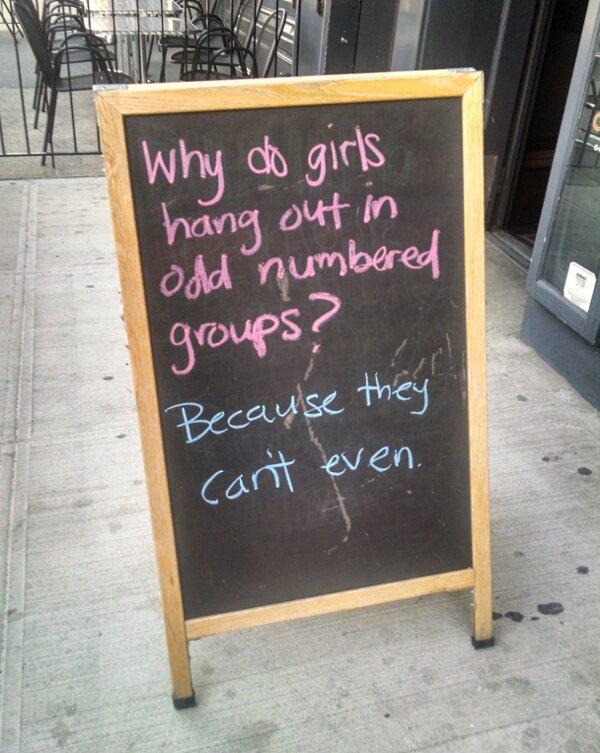 Why do girls
hang out in
odd numbered
groups?
Because they
can't even.